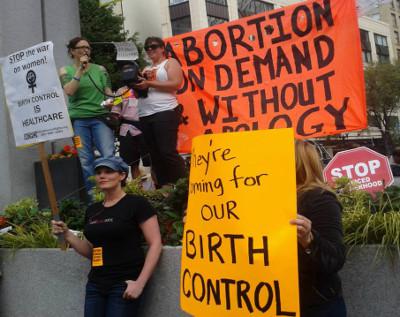 STOP the war
on women!
BIRTH CONTROL
IS
HEALTHCARE
ABORTION
ON DEMAND
+ WITHOUT
APOLOGY
They're
coming for
OUR
BIRTH
CONTROL
STOP